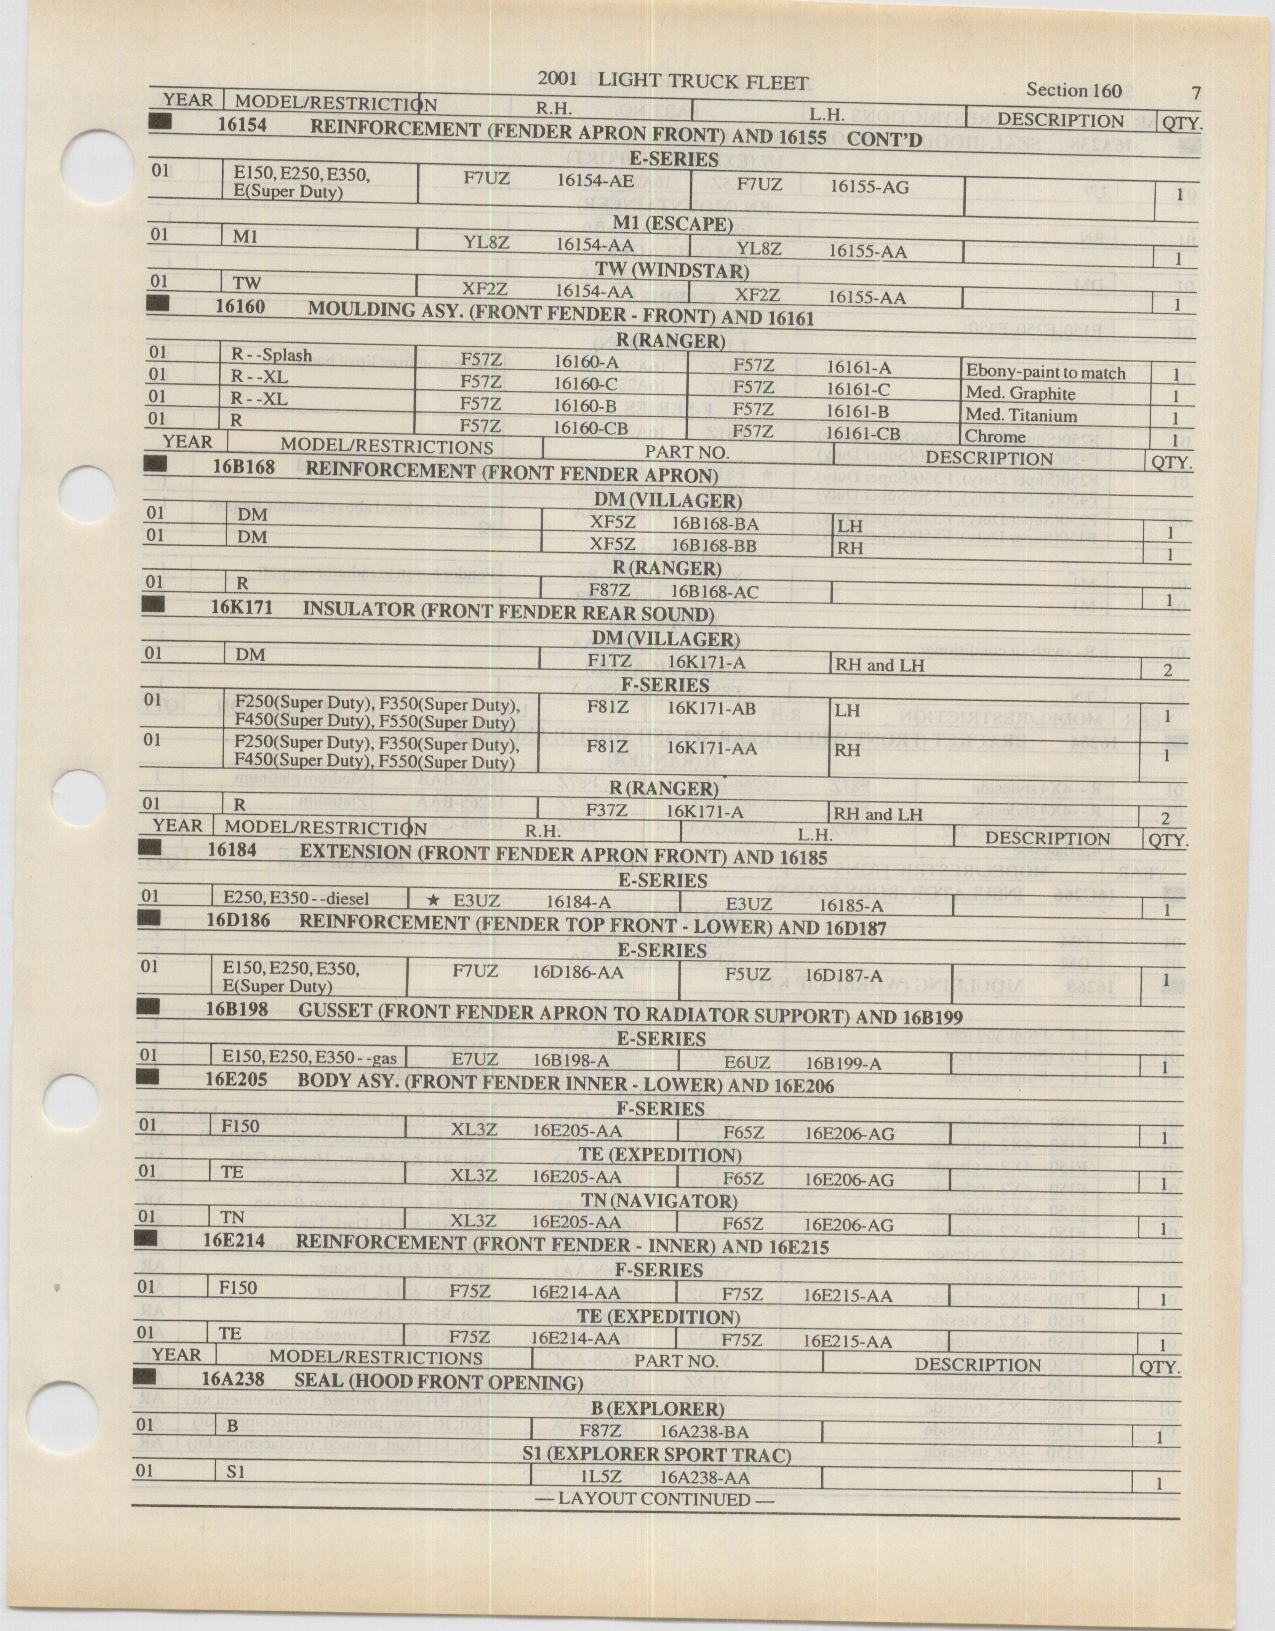 2001 LIGHT TRUCK FLEET Section 160 7
YEAR MODEL/RESTRICTION R.H. L.H. DESCRIPTION QTY.
16154 REINFORCEMENT (FENDER APRON FRONT) AND 16155 CONT'D
E-SERIES
01 E150, E250, E350, F7UZ 16154-AE F7UZ 16155-AG 1
E(Super Duty)
M1 (ESCAPE)
01 M1 YL8Z 16154-AA YL8Z 16155-AA 1
TW (WINDSTAR)
01 TW XF2Z 16154-AA XF2Z 16155-AA 1
16160 MOULDING ASY. (FRONT FENDER - FRONT) AND 16161
R (RANGER)
01 R--Splash F57Z 16160-A F57Z 16161-A Ebony-paint to match 1
01 R--XL F57Z 16160-C F57Z 16161-C Med. Graphite 1
01 R--XL F57Z 16160-B F57Z 16161-B Med. Titanium 1
01 R F57Z 16160-CB F57Z 16161-CB Chrome 1
YEAR MODEL/RESTRICTIONS PART NO. DESCRIPTION QTY.
16B168 REINFORCEMENT (FRONT FENDER APRON)
DM (VILLAGER)
01 DM XF5Z 16B168-BA LH 1
01 DM XF5Z 16B168-BB RH 1
R (RANGER)
01 R F87Z 16B168-AC 1
16K171 INSULATOR (FRONT FENDER REAR SOUND)
DM (VILLAGER)
01 DM F1TZ 16K171-A RH and LH 2
F-SERIES
01 F250(Super Duty), F350(Super Duty), F81Z 16K171-AB LH 1
F450(Super Duty), F550(Super Duty)
01 F250(Super Duty), F350(Super Duty), F81Z 16K171-AA RH 1
F450(Super Duty), F550(Super Duty)
R (RANGER)
01 R F37Z 16K171-A RH and LH 2
YEAR MODEL/RESTRICTION R.H. L.H. DESCRIPTION QTY.
16184 EXTENSION (FRONT FENDER APRON FRONT) AND 16185
E-SERIES
01 E250, E350--diesel ★ E3UZ 16184-A E3UZ 16185-A 1
16D186 REINFORCEMENT (FENDER TOP FRONT - LOWER) AND 16D187
E-SERIES
01 E150, E250, E350, F7UZ 16D186-AA F5UZ 16D187-A 1
E(Super Duty)
16B198 GUSSET (FRONT FENDER APRON TO RADIATOR SUPPORT) AND 16B199
E-SERIES
01 E150, E250, E350--gas E7UZ 16B198-A E6UZ 16B199-A 1
16E205 BODY ASY. (FRONT FENDER INNER - LOWER) AND 16E206
F-SERIES
01 F150 XL3Z 16E205-AA F65Z 16E206-AG 1
TE (EXPEDITION)
01 TE XL3Z 16E205-AA F65Z 16E206-AG 1
TN (NAVIGATOR)
01 TN XL3Z 16E205-AA F65Z 16E206-AG 1
16E214 REINFORCEMENT (FRONT FENDER - INNER) AND 16E215
F-SERIES
01 F150 F75Z 16E214-AA F75Z 16E215-AA 1
TE (EXPEDITION)
01 TE F75Z 16E214-AA F75Z 16E215-AA 1
YEAR MODEL/RESTRICTIONS PART NO. DESCRIPTION QTY.
16A238 SEAL (HOOD FRONT OPENING)
B (EXPLORER)
01 B F87Z 16A238-BA 1
S1 (EXPLORER SPORT TRAC)
01 S1 1L5Z 16A238-AA 1
— LAYOUT CONTINUED —